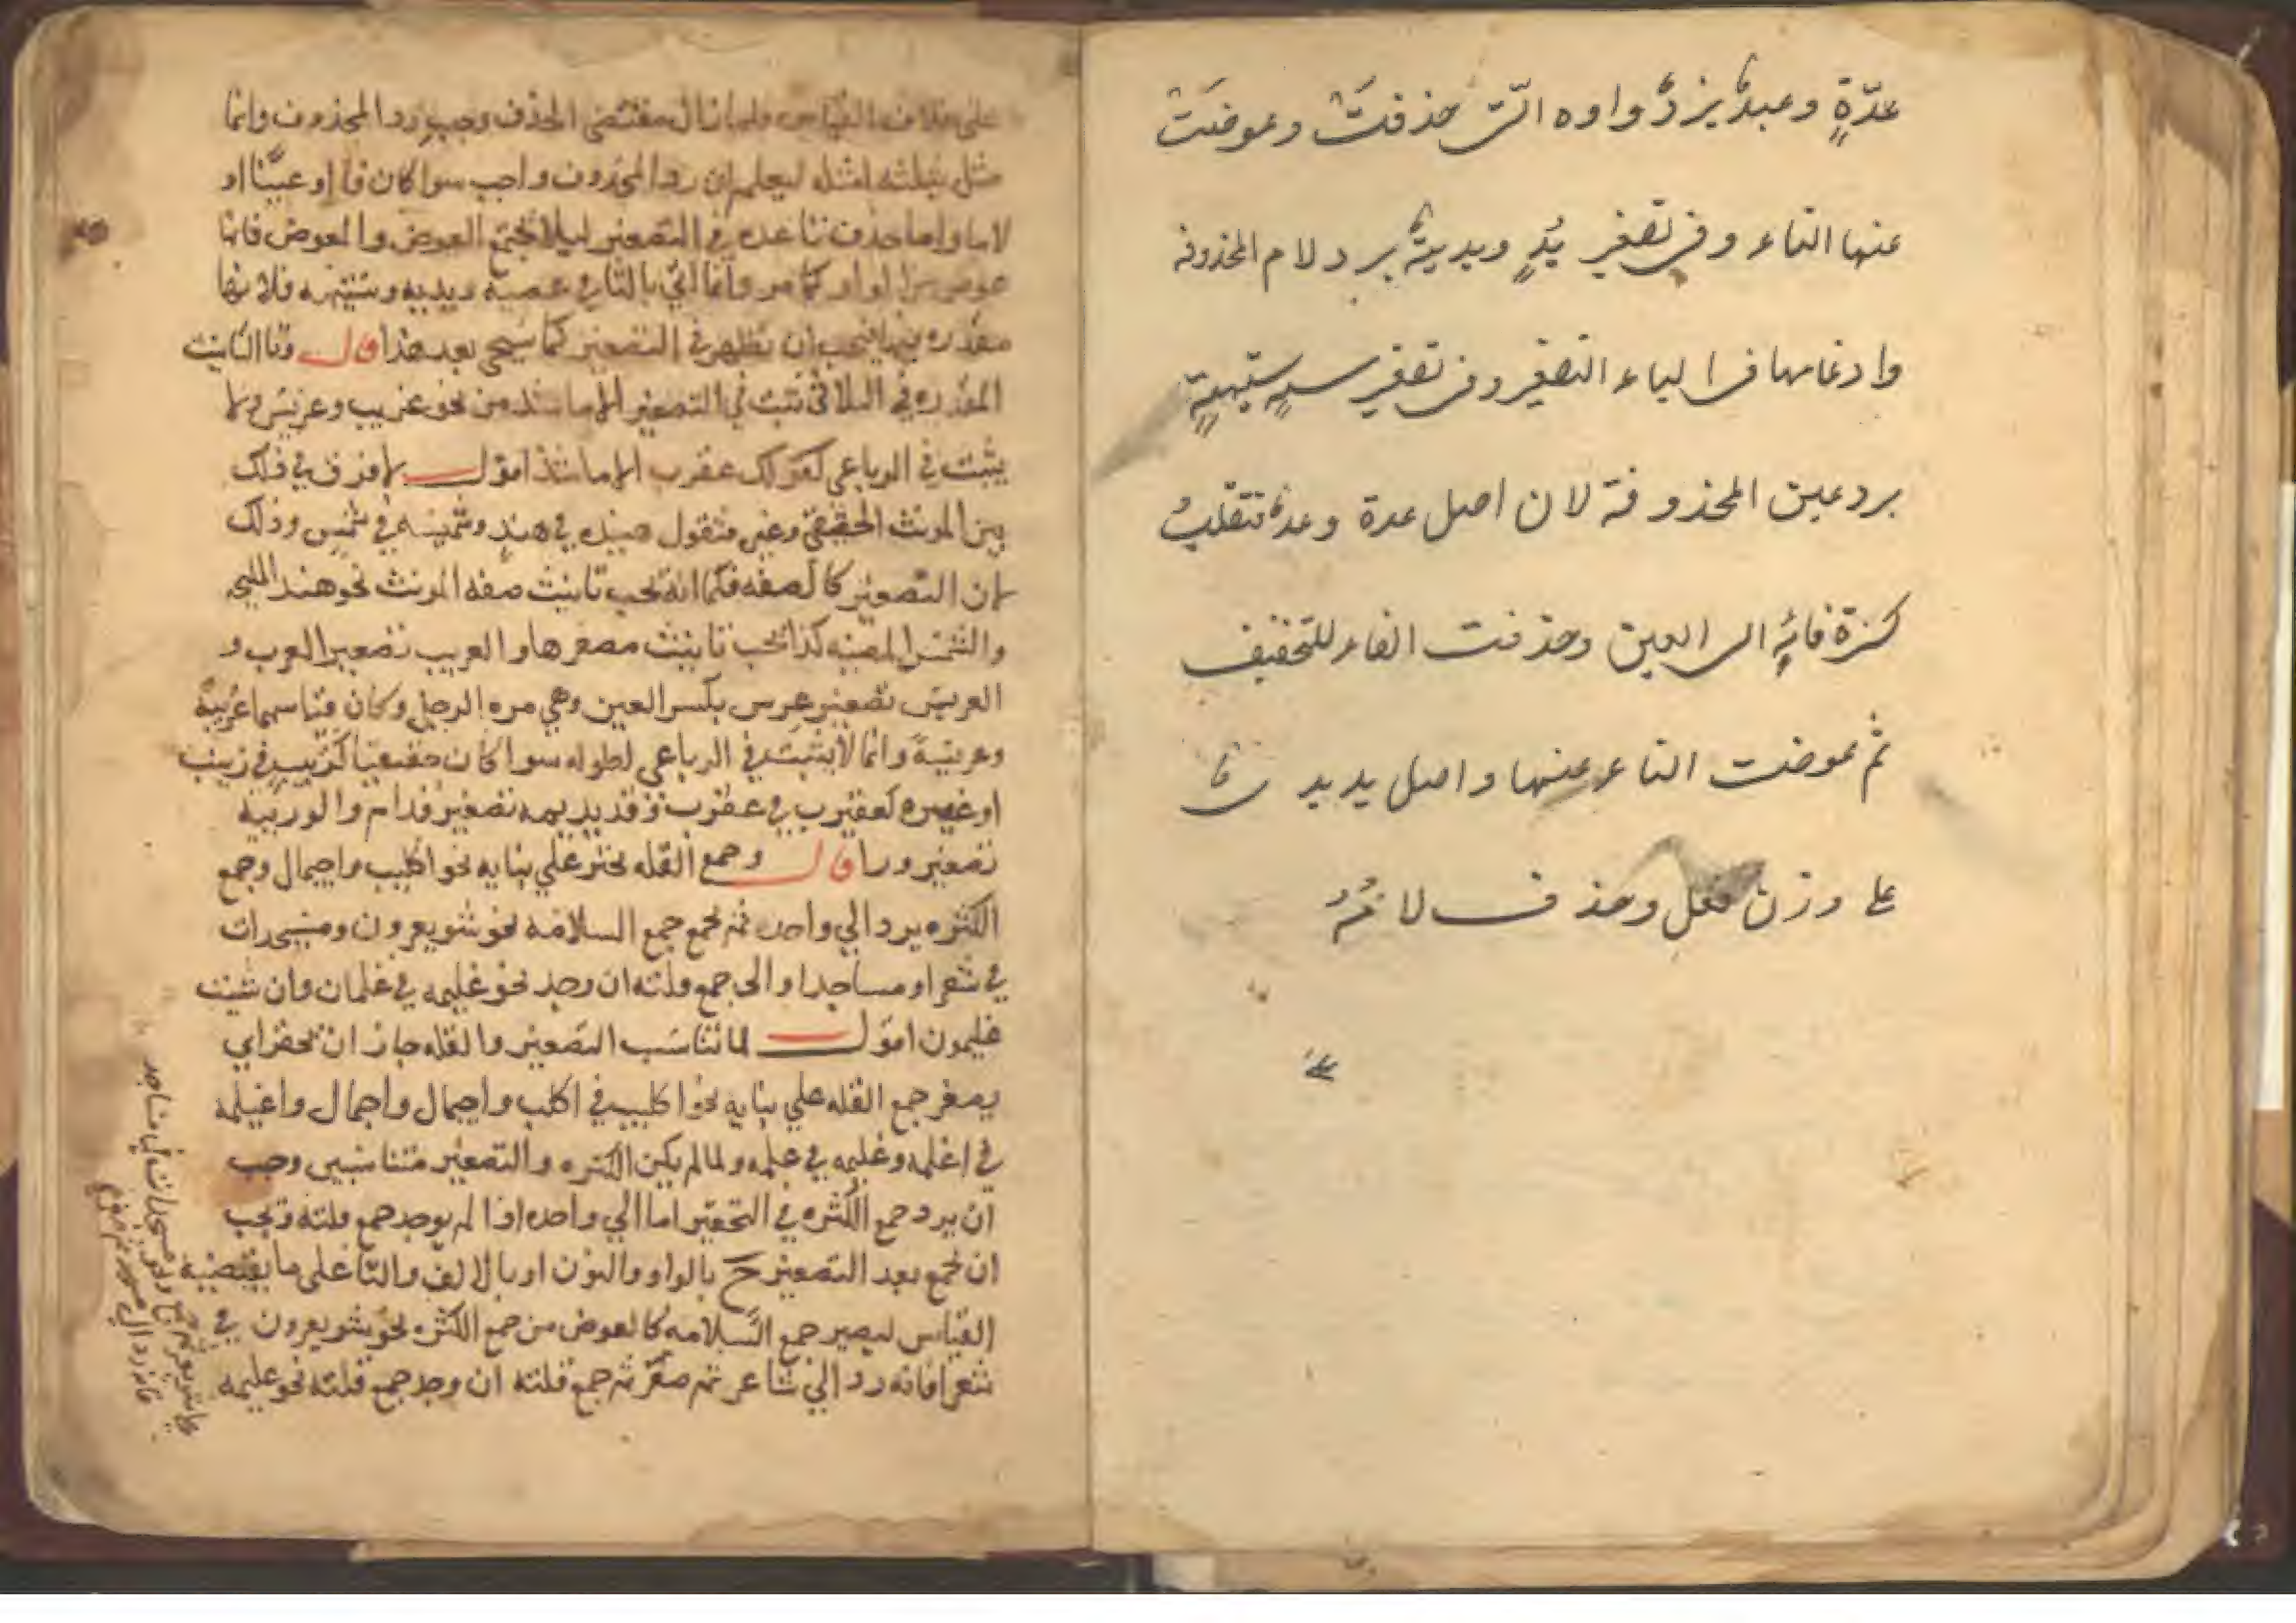 عدّةٍ وعبدٌ يزدُ واوه التى حذفتْ وعوضَتْ
عنها التاء وفى تصغير يُدٍ ويديةٌ برد لام المحذوفة
وادغامها فى الياء التصغير وفى تصغير سهٍ ستيهةٍ
برد عين المحذوفة لان اصل عدة وعدةٌ تنقلبُ
كسرة فائهٍ الى العين وحذفت الفاء للتخفيف
ثم عوضت التاء عنها واصل يد يدىٌ
على وزن فعل وحذف لامُهُ
على خلاف القياس ولما زال مقتضى الحذف وجب رد المحذوف وانما
مثل بثلثه امثله ليعلم ان رد المحذوف واجب سوا كان فا او عينًا او
لاما وانما حذف تا عده في التصغير ليلا تجتمع العوض والمعوض فانها
عوض من الواو كما مر وانما اتي بالتا في عصية ويديه وستيهه فلانها
مقدره فيها فيجب ان تظهر في التصغير كما سيجي بعد هذا قال وتا التانيث
المقدره في الثلاثي تثبت في التصغير الا ما شذ من نحو عريب وعريس ولا
يثبت في الرباعي كقولك عقرب الا ما شذ اقول لا فرق في ذلك
بين المونث الحقيقي وغير فتقول هنيده في هند وشميسه في شمس وذلك
لان التصغير كالصفه فكما انه يجب تانيث صفه المونث نحو هند المليحه
والشمس المضيه كذا يجب تانيث مصغرها والعريب تصغير العرب و
العريس تصغير عرس بكسر العين وهي مره الرجل وكان قياسهما عريبة
وعريسة وانما لا يثبت في الرباعي لطوله سوا كان حقيقيا كزيينب في زينب
او غيره كعقيرب في عقرب وقديديمه تصغير قدام والوريية
تصغير ورا قال وجمع القله يحقر علي بنايه نحو اكيلب واجيمال وجمع
الكثره يرد الي واحده ثم يجمع جمع السلامه نحو شويعرون ومسيجدات
في شعرا ومساجد او الى جمع قلته ان وجد نحو غليمه في غلمان وان شئت
غليمون اقول لما تناسب التصغير والقله جاز ان يحقر اي
يصغر جمع القله علي بنايه نحو اكيلب في اكلب واجيمال واجمال واغيلمه
في اغلمه وغليمه في غلمه ولما لم يكن الكثره والتصغير متناسبين وجب
ان يرد جمع الكثره في التحقير اما الي واحده اذا لم يوجد جمع قلته ويجب
ان يجمع بعد التصغير ح بالواو والنون او بالالف والتا على ما يقتضيه
القياس ليصير جمع السلامه كالعوض من جمع الكثره نحو شويعرون في
شعرا فانه رد الي شاعر ثم صغر ثم جمع قلته ان وجد جمع قلته نحو غليمه